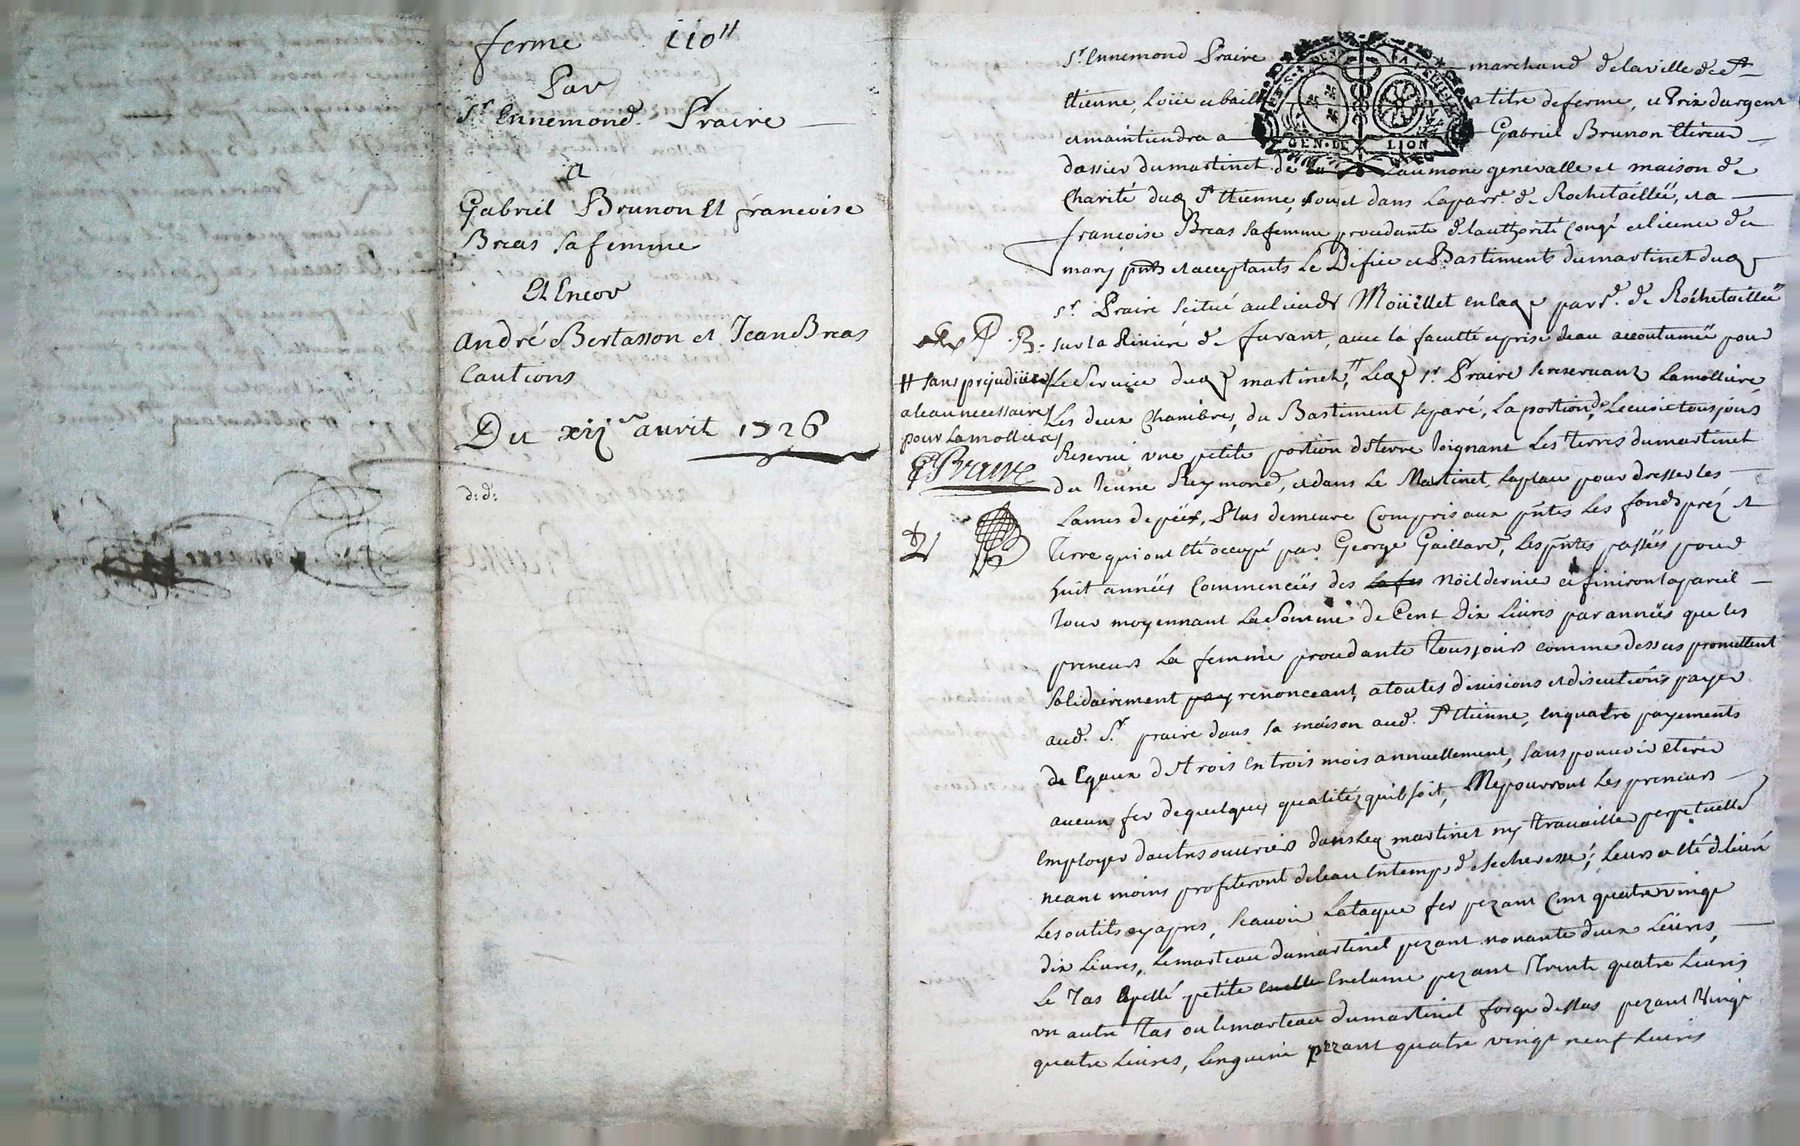 ferme 110ᵗᵗ
Par
Sʳ Ennemond Praire
A
Gabriel Brunon Et francoise
Breas sa femme
Et Encor
André Bertasson et Jean Breas
Cautions
Du xijᵉ avril 1726
d: d:
Sʳ Ennemond Praire marchand de la ville de Sᵗ
Etienne, Loüe et bail a titre de ferme, et Prix d'argent
et maintiendra a Gabriel Brunon Etireur
dassier du martinet de Laumone generalle et maison de
Charité dud Sᵗ Etienne, dans la parrˢᵉ de Rochetaillée, et a
francoise Breas sa femme procedante de lauthorité Congé et licence de
mary pnts et acceptants Le Difice et Bastiments du martinet dud
Sʳ Praire scitué au lieu de Moüillet en lad parrˢᵉ de Rochetaillée
sur la Riviere de furant, avec la faculté et prise deau accoutumée pour
Le Service dud martinet, # Led Sʳ Praire se reservant La molliere
Les deux Chambres, du Bastiment separé, La portion de Lecurie tousjours
Reservé une petite portion de terre Joignant Les terres du martinet
du Jeune Reymond, et dans Le Martinet, la place pour dresser les
Lames de Plus demeure Compris aux pntes Les fonds préz et
Terre qui ont été occupé par George Gaillard, Les pntes passées pour
huit années Commencées des la fes Nöel dernier et finiront a pareil
Jour moyennant La Somme de Cent Dix Livres par années que les
preneurs La femme procedante tousjours comme dessus promettent
Solidairement pay renonceant, a toutes divisions et discutions payer
aud. Sʳ praire dans sa maison aud. Sᵗ Etienne, en quatre payements
de Egaux de trois en trois mois annuellement, sans pouvoir etirer
aucun fer de quelques qualités quil soit, Ne pourront Les preneurs
employer dautres ouvriers dans led martinet ny travailler perpetuelle
neant moins profiteront deleau En temps de secheresse; Leurs a eté delivré
Les outils cy apres, Scavoir La taque fer pezant Cent quatre vingt
dix Livres, Le marteau du martinet pezant nonante deux Livres,
Le Tas apellé petite Enclume pezant trente quatre Livres
un autre Tas ou le marteau du martinet forge dessus pezant Vingt
quatre Livres, pezant quatre vingt neuf Livres
# sans prejudice
a leau necessaire
pour La molliere
Praire